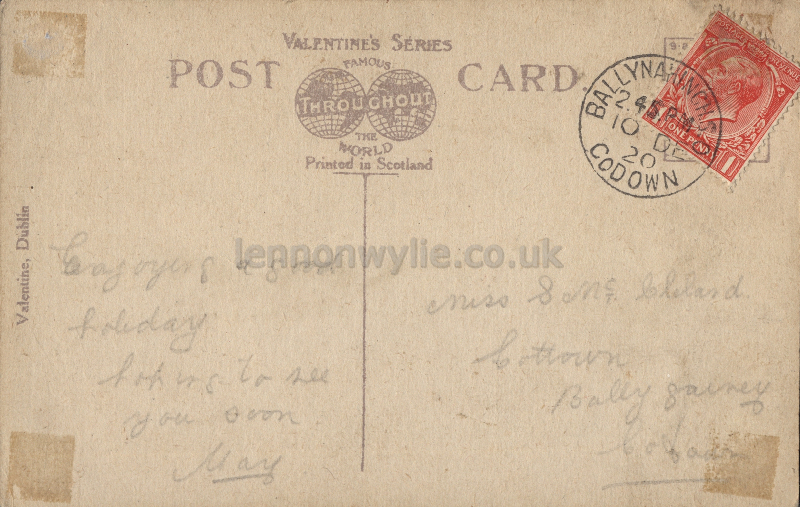 VALENTINE'S SERIES
POST CARD
FAMOUS
THROUGHOUT
THE
WORLD
Printed in Scotland
BALLYNAHINCH
2.45 PM
10 DE
20
CO DOWN
ONE PENNY
Valentine, Dublin
lennonwylie.co.uk
Engoying a good
holiday
hoping to see
you soon
May
Miss S Mc Clelard
Cottown
Bally gainey
Co Down